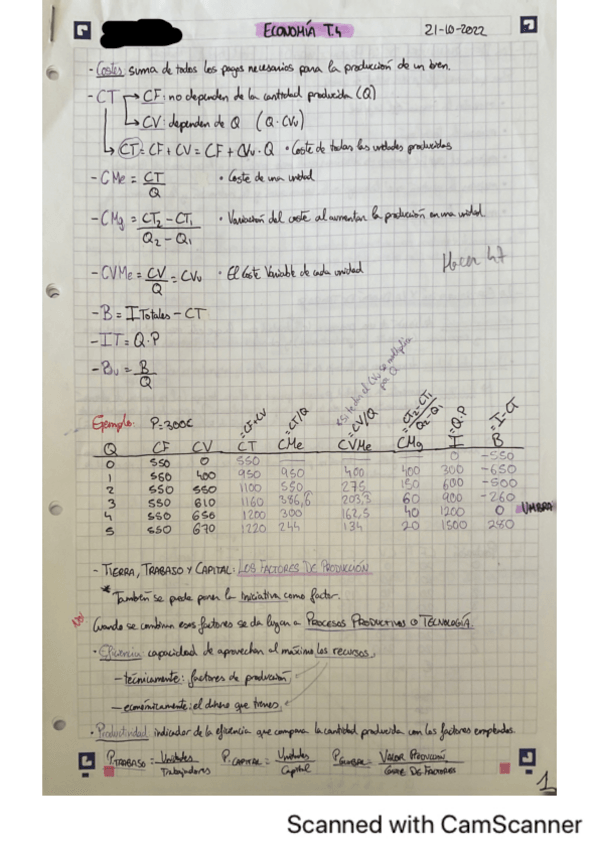 ECONOMÍA T.4 21-10-2022
- Costes: suma de todos los pagos necesarios para la producción de un bien.
- CT → CF: no dependen de la cantidad producida (Q)
→ CV: dependen de Q (Q·CVu)
→ CT = CF + CV = CF + CVu·Q • Coste de todas las unidades producidas
- CMe = CT/Q • Coste de una unidad
- CMg = CT2 - CT1 / Q2 - Q1 • Variación del coste al aumentar la producción en una unidad
- CVMe = CV/Q = CVu • El Coste Variable de cada unidad
Hacer
- B = I Totales - CT
- IT = Q·P
- Bu = B/Q
Ejemplo: P=300€
=CF+CV =CT/Q =CV/Q =CT2-CT1/Q2-Q1 =Q·P =I-CT
Q CF CV CT CMe CVMe CMg I B
0 550 0 550 — — — 0 -550
1 550 400 950 950 400 400 300 -650
2 550 550 1100 550 275 150 600 -500
3 550 610 1160 386,6 203,3 60 900 -260
4 550 650 1200 300 162,5 40 1200 0 UMBRAL
5 550 670 1220 244 134 20 1500 280
- TIERRA, TRABAJO Y CAPITAL: LOS FACTORES DE PRODUCCIÓN
* También se puede poner la iniciativa como factor.
Cuando se combinan esos factores se da lugar a PROCESOS PRODUCTIVOS O TECNOLOGÍA.
• Eficiencia: capacidad de aprovechar al máximo los recursos,
— técnicamente: factores de producción,
— económicamente: el dinero que tienes,
• Productividad: indicador de la eficiencia que compara la cantidad producida con los factores empleados.
P.TRABAJO = Unidades/Trabajadores P.CAPITAL = Unidades/Capital P.GLOBAL = VALOR PRODUCCIÓN/COSTE DE FACTORES
1
Scanned with CamScanner